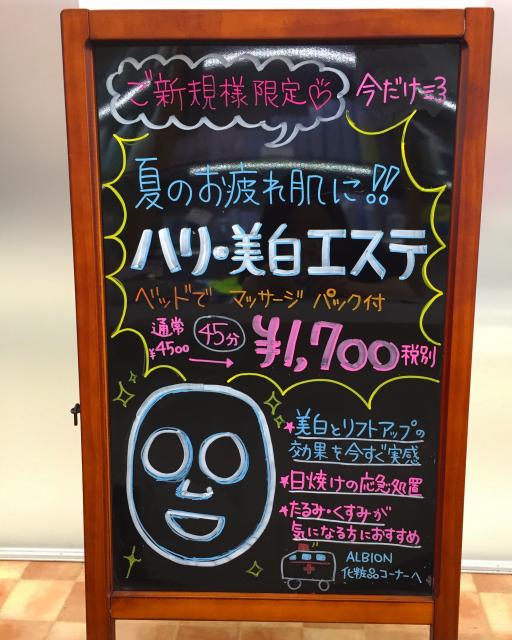 ご新規様限定♡
今だけ=3
夏のお疲れ肌に!!
ハリ・美白エステ
ベッドで マッサージ パック付
通常
¥4500
45分
→
¥1,700税別
★美白とリフトアップの
効果を今すぐ実感
★日焼けの応急処置
★たるみ・くすみが
気になる方におすすめ
ALBION
化粧品コーナーへ